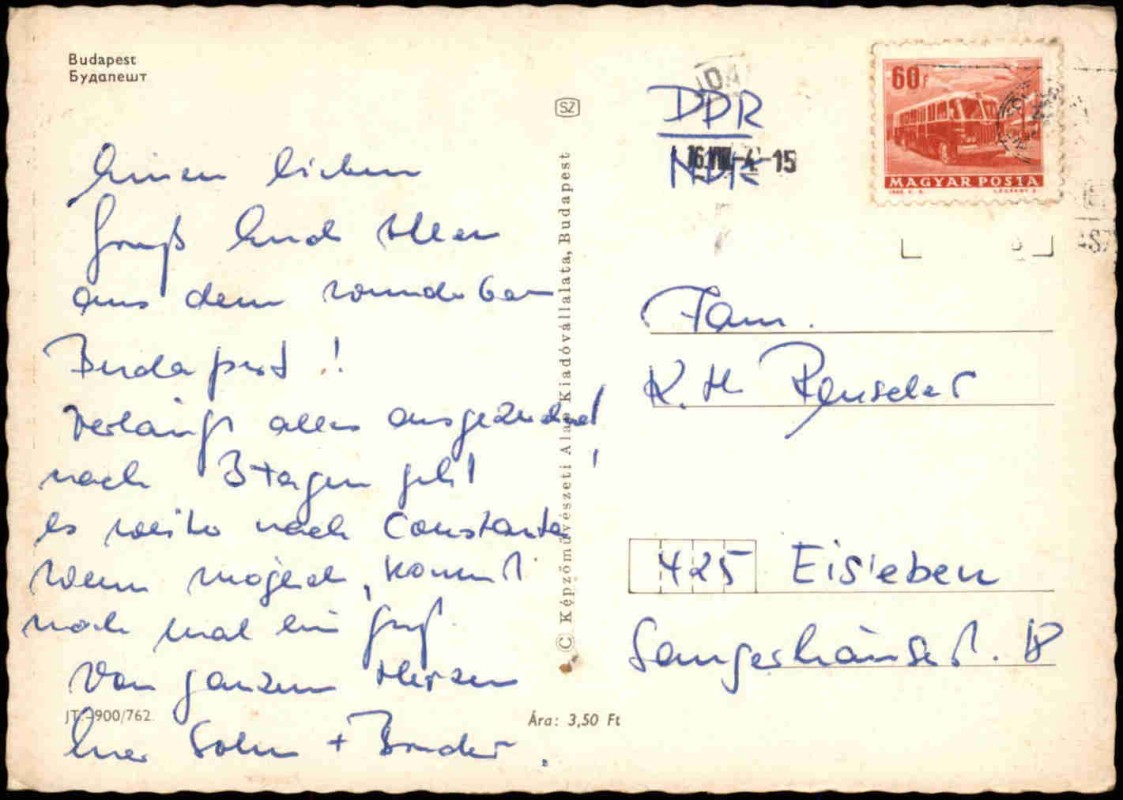 Budapest
Будапешт
Einen lieben
Gruß Euch allen
aus dem wunderbaren
Budapest!
Verläuft alles ausgezeichnet!
nach 3 Tagen geht
es weiter nach Constanta
wenn möglich, kommt
noch mal ein Gruß.
Von ganzem Herzen
Euer Sohn + Bruder.
JT.-900/762
Ára: 3,50 Ft
SZ
© Képzőművészeti Alap Kiadóvállalata, Budapest
DDR
NDK
16.VIII.-4-15
60f
MAGYAR POSTA
Fam.
K. H.
425 Eisleben
Sangerhäuserst. 18